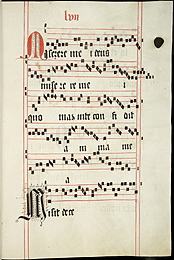 lvii
Miserere mei deus
mise re re me i
quo mas inte con fi dit
a ni ma me
a
Misit de ce